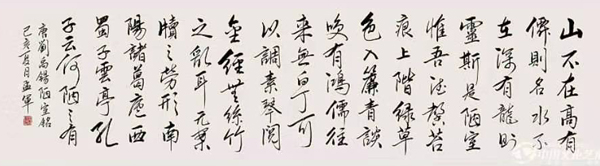 山不在高有
僊則名水不
在深有龍則
靈斯是陋室
惟吾德馨苔
痕上階綠草
色入簾青談
咲有鴻儒往
來無白丁可
以調素琴閱
金經無絲竹
之亂耳无案
牘之勞形南
陽諸葛廬西
蜀子雲亭孔
子云何陋之有
唐劉禹錫陋室銘
己亥夏月孟軍